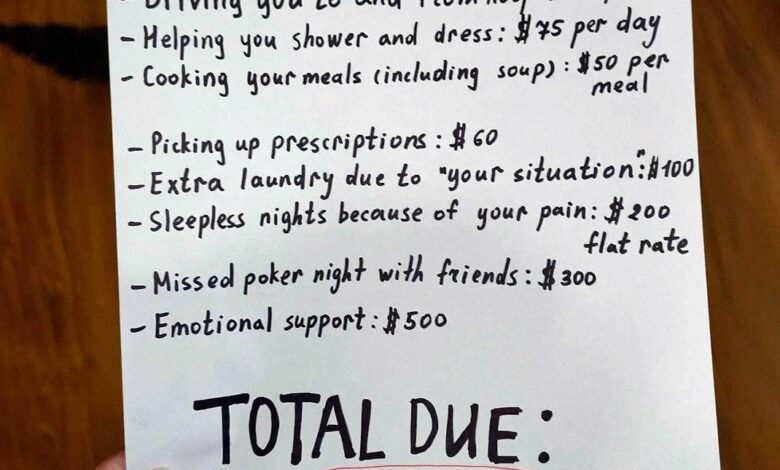 - Driving you to and from
- Helping you shower and dress: $75 per day
- Cooking your meals (including soup): $50 per
meal
- Picking up prescriptions: $60
- Extra laundry due to "your situation": $100
- Sleepless nights because of your pain: $200
flat rate
- Missed poker night with friends: $300
- Emotional support: $500
TOTAL DUE: